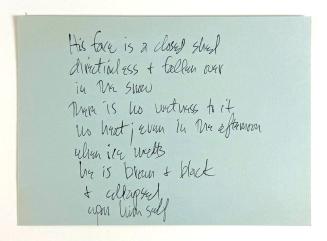 His face is a closed shed
directionless + fallen over
in the snow
There is no wetness to it
no heat, even in the afternoon
when ice melts
he is brown + black
+ collapsed
upon himself